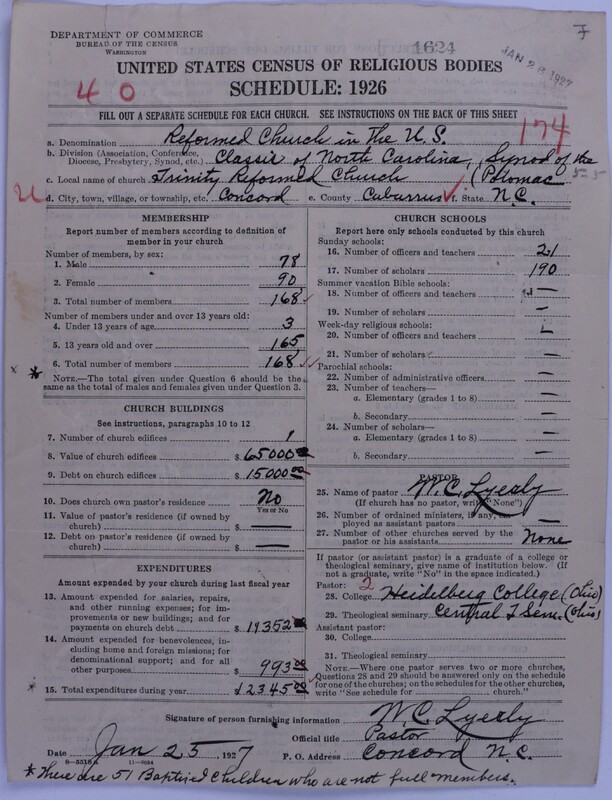 DEPARTMENT OF COMMERCE
BUREAU OF THE CENSUS
WASHINGTON
1624
JAN 28 1927
UNITED STATES CENSUS OF RELIGIOUS BODIES
SCHEDULE: 1926
4 0
FILL OUT A SEPARATE SCHEDULE FOR EACH CHURCH. SEE INSTRUCTIONS ON THE BACK OF THIS SHEET
174
a. Denomination Reformed Church in The U.S.
b. Division (Association, Conference, Diocese, Presbytery, Synod, etc.) Classis of North Carolina, Synod of the
c. Local name of church Trinity Reformed Church (Potomac
d. City, town, village, or township, etc. Concord e. County Cabarrus f. State N.C.
MEMBERSHIP
Report number of members according to definition of
member in your church
Number of members, by sex:
1. Male 78
2. Female 90
3. Total number of members 168
Number of members under and over 13 years old:
4. Under 13 years of age 3
5. 13 years old and over 165
6. Total number of members 168
NOTE.—The total given under Question 6 should be the
same as the total of males and females given under Question 3.
CHURCH BUILDINGS
See instructions, paragraphs 10 to 12
7. Number of church edifices 1
8. Value of church edifices $ 65000 00
9. Debt on church edifices $ 15000 00
10. Does church own pastor's residence No
Yes or No
11. Value of pastor's residence (if owned by
church) $ —
12. Debt on pastor's residence (if owned by
church) $ —
EXPENDITURES
Amount expended by your church during last fiscal year
13. Amount expended for salaries, repairs,
and other running expenses; for im-
provements or new buildings; and for
payments on church debt $ 11352 00
14. Amount expended for benevolences, in-
cluding home and foreign missions; for
denominational support; and for all
other purposes $ 993 00
15. Total expenditures during year $ 12345 00
CHURCH SCHOOLS
Report here only schools conducted by this church
Sunday schools:
16. Number of officers and teachers 21
17. Number of scholars 190
Summer vacation Bible schools:
18. Number of officers and teachers —
19. Number of scholars —
Week-day religious schools:
20. Number of officers and teachers
21. Number of scholars —
Parochial schools:
22. Number of administrative officers —
23. Number of teachers—
a. Elementary (grades 1 to 8) —
b. Secondary —
24. Number of scholars—
a. Elementary (grades 1 to 8) —
b. Secondary —
PASTOR
25. Name of pastor W. C. Lyerly
(If church has no pastor, write "None")
26. Number of ordained ministers, if any, em-
ployed as assistant pastors —
27. Number of other churches served by the
pastor or his assistants None
If pastor (or assistant pastor) is a graduate of a college or
theological seminary, give name of institution below. (If
not a graduate, write "No" in the space indicated.)
Pastor: 2
28. College Heidelberg College (Ohio)
29. Theological seminary Central T Sem. (Ohio)
Assistant pastor:
30. College
31. Theological seminary
NOTE.—Where one pastor serves two or more churches,
Questions 28 and 29 should be answered only on the schedule
for one of the churches; on the schedules for the other churches,
write "See schedule for church."
Signature of person furnishing information W. C. Lyerly
Official title Pastor
Date Jan 25, 1927 P. O. Address Concord N.C.
8—5518a 11—9024
* There are 51 Baptised Children who are not full members.